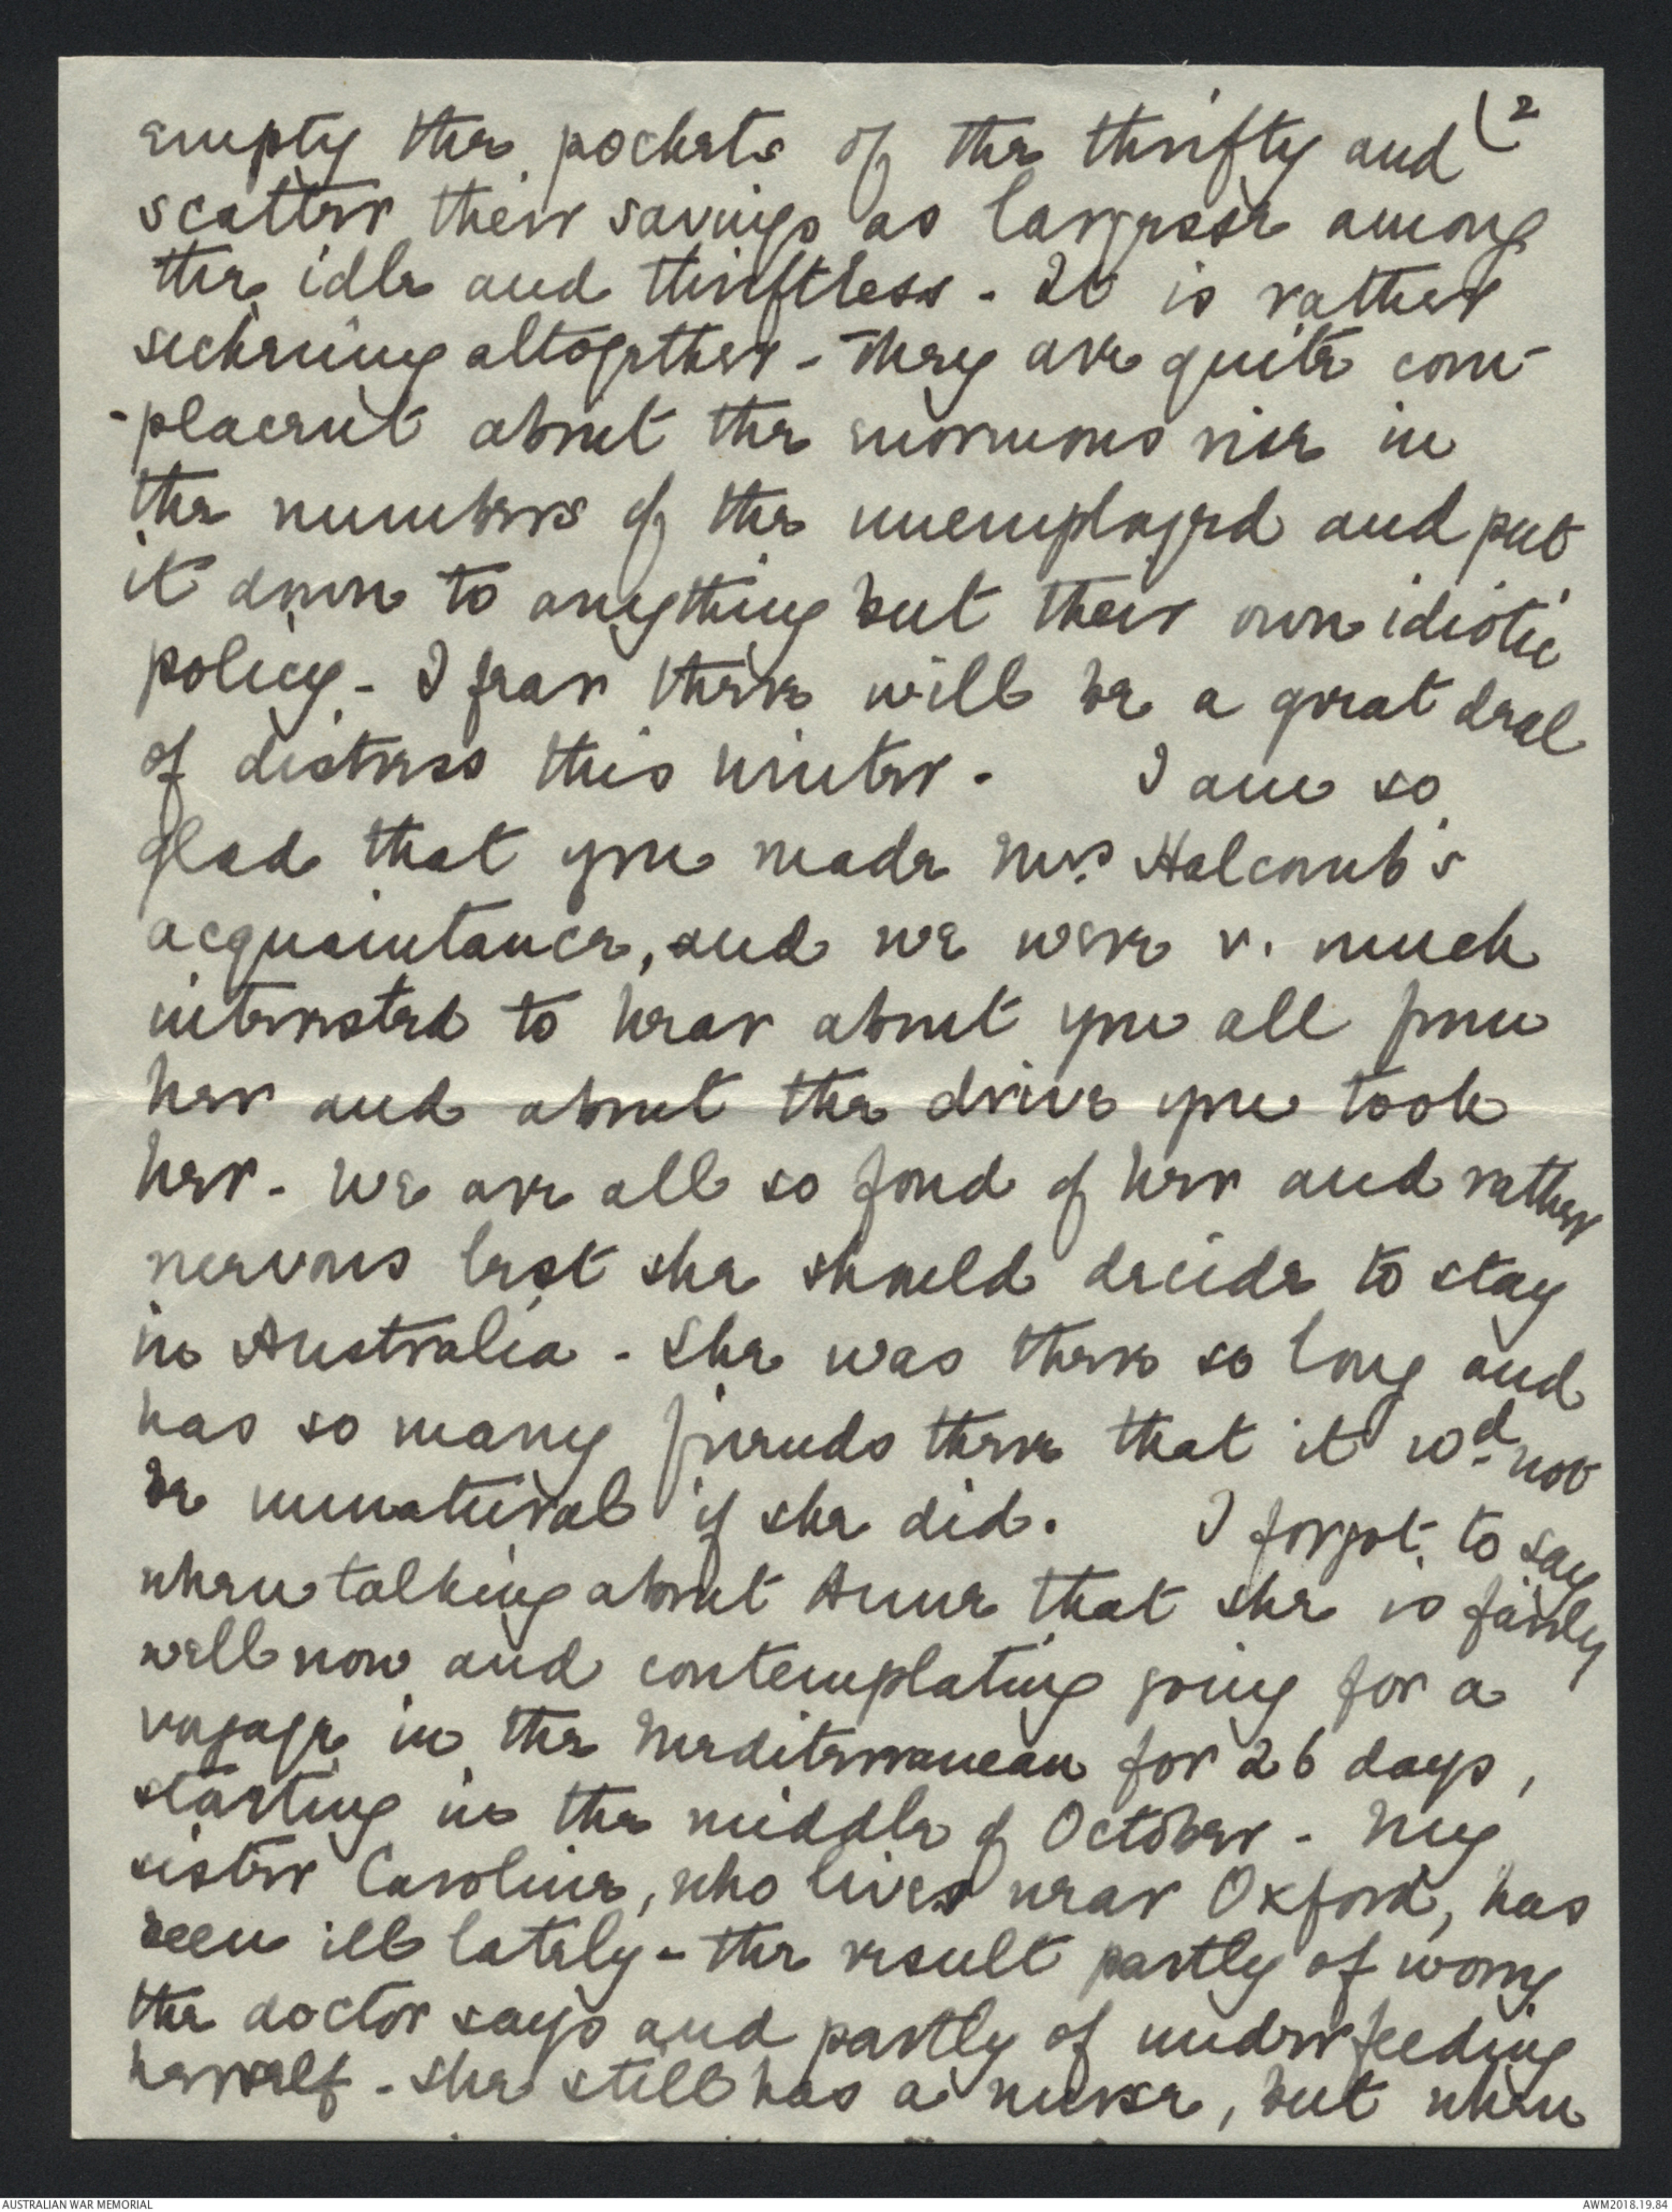 (2
empty the pockets of the thrifty and
scatter their savings as largesse among
the idle and thriftless - It is rather
sickening altogether - They are quite com-
-placent about the enormous rise in
the numbers of the unemployed and put
it down to anything but their own idiotic
policy - I fear there will be a great deal
of distress this winter - I am so
glad that you made Mrs. Halcomb's
acquaintance, and we were v. much
interested to hear about you all from
her and about the drive you took
her - We are all so fond of her and rather
nervous lest she should decide to stay
in Australia - She was there so long and
has so many friends there that it wd. not
be unnatural if she did. I forgot to say
when talking about Anne that she is fairly
well now and contemplating going for a
voyage in the Mediterranean for 26 days,
starting in the middle of October - My
sister Caroline, who lives near Oxford, has
been ill lately - the result partly of worry
the doctor says and partly of underfeeding
herself - She still has a nurse, but when
AUSTRALIAN WAR MEMORIAL
AWM2018.19.84